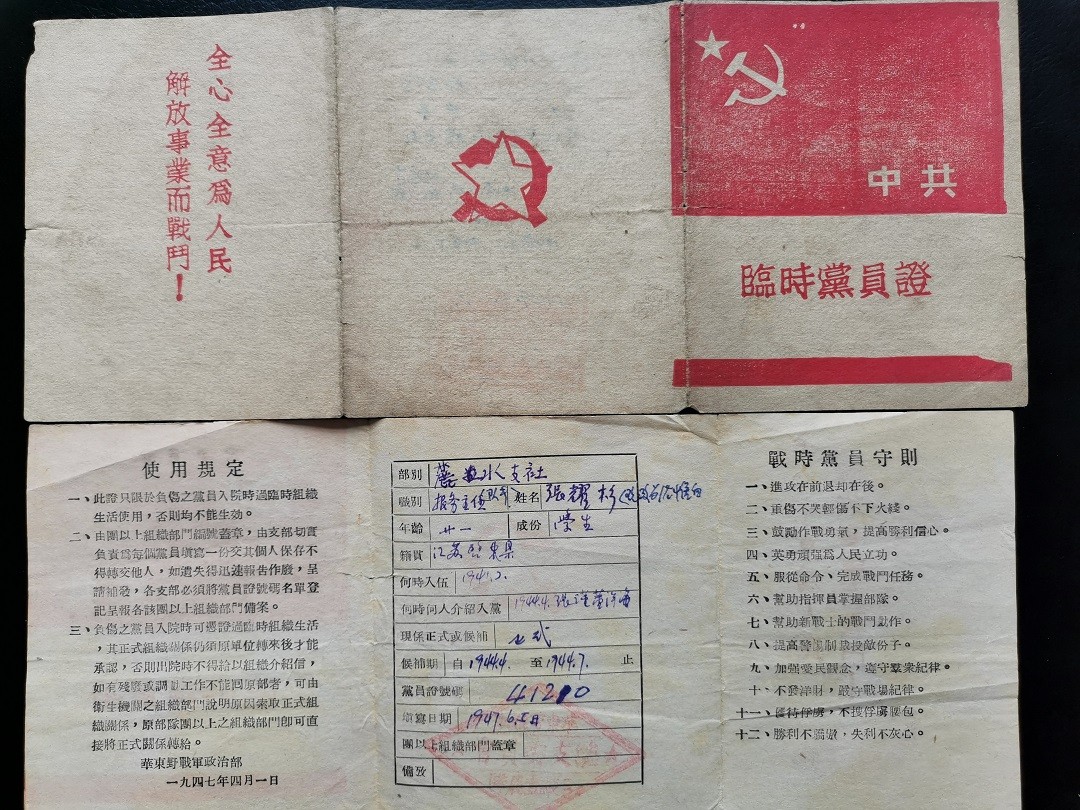 全心全意爲人民
解放事業而戰鬥！
中共
臨時黨員證
使用規定
一、此證只限於負傷之黨員入院時過臨時組織
生活使用，否則均不能生効。
二、由團以上組織部門編號蓋章，由支部切實
負責爲每個黨員填寫一份交其個人保存不
得轉交他人，如遺失得迅速報告作廢，呈
請補發，各支部必須將黨員證號碼名單登
記呈報各該團以上組織部門備案。
三、負傷之黨員入院時可憑證過臨時組織生活
，其正式組織關係仍須原單位轉來後才能
承認，否則出院時不得給以組織介紹信，
如有殘廢或調動工作不能回原部者，可由
衛生機關之組織部門說明原因索取正式組
織關係，原部隊團以上之組織部門即可直
接將正式關係轉給。
華東野戰軍政治部
一九四七年四月一日
部別 支社
職別 姓名 張耀
年齡 廿一 成份 學生
籍貫 江苏 東县
何時入伍 1941.2.
何時何人介紹入黨 1944.4.
現係正式或候補 正式
候補期 自1944.4. 至1944.7. 止
黨員證號碼 41210
填寫日期 1947.6.5日
團以上組織部門蓋章
備攷
戰時黨員守則
一、進攻在前退却在後。
二、重傷不哭輕傷不下火綫。
三、鼓勵作戰勇氣，提高勝利信心。
四、英勇頑强爲人民立功。
五、服從命令、完成戰鬥任務。
六、幫助指揮員掌握部隊。
七、幫助新戰士的戰鬥動作。
八、提高警惕制裁投敵份子。
九、加强愛民觀念，遵守羣衆紀律。
十、不發洋財，嚴守戰場紀律。
十一、優待俘虜，不搜俘虜腰包。
十二、勝利不驕傲，失利不灰心。